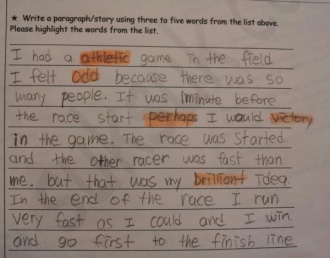 ★ Write a paragraph/story using three to five words from the list above.
Please highlight the words from the list.
I had a athletic game in the field
I felt odd because there was so
many people. It was 1minute before
the race start perhaps I would victory
in the game. The race was started
and the other racer was fast than
me. but that was my brilliant idea
In the end of the race I run
very fast as I could and I win.
and go first to the finish line